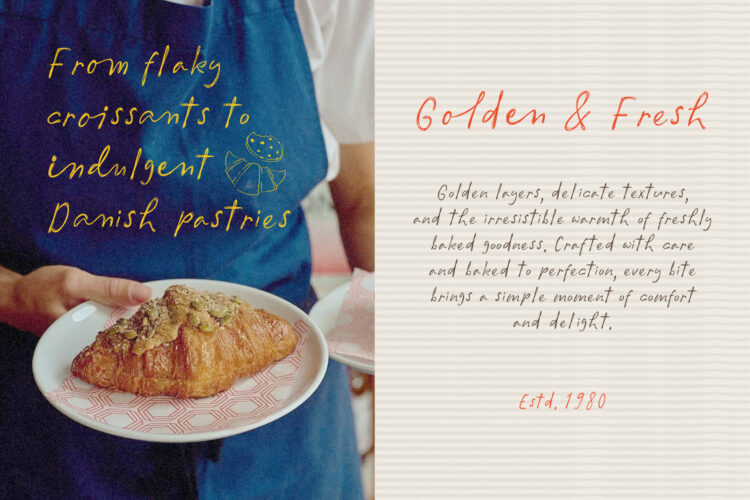 From flaky
croissants to
indulgent
Danish pastries
Golden & Fresh
Golden layers, delicate textures,
and the irresistible warmth of freshly
baked goodness. Crafted with care
and baked to perfection, every bite
brings a simple moment of comfort
and delight.
Estd. 1980